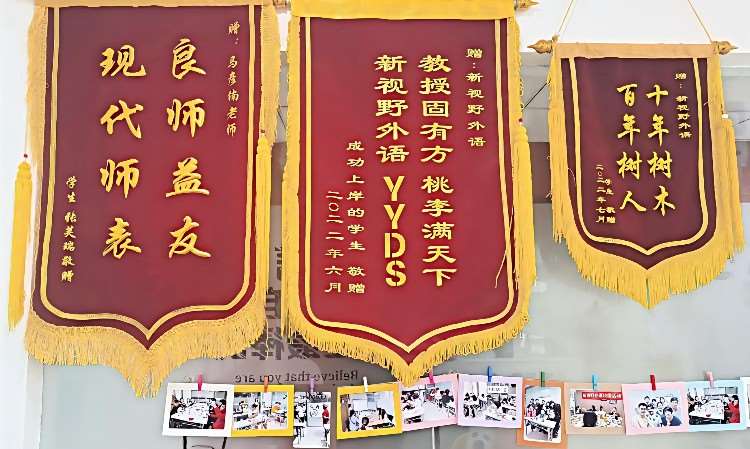 赠：马彦楠老师
良师益友
现代师表
学生 张美瑞敬赠
赠：新视野外语
教授固有方 桃李满天下
新视野外语YYDS
成功上岸的学生 敬赠
二〇二二年六月
赠：新视野外语
十年树木
百年树人
学生 敬赠
二〇二二年七月
Believe that you are